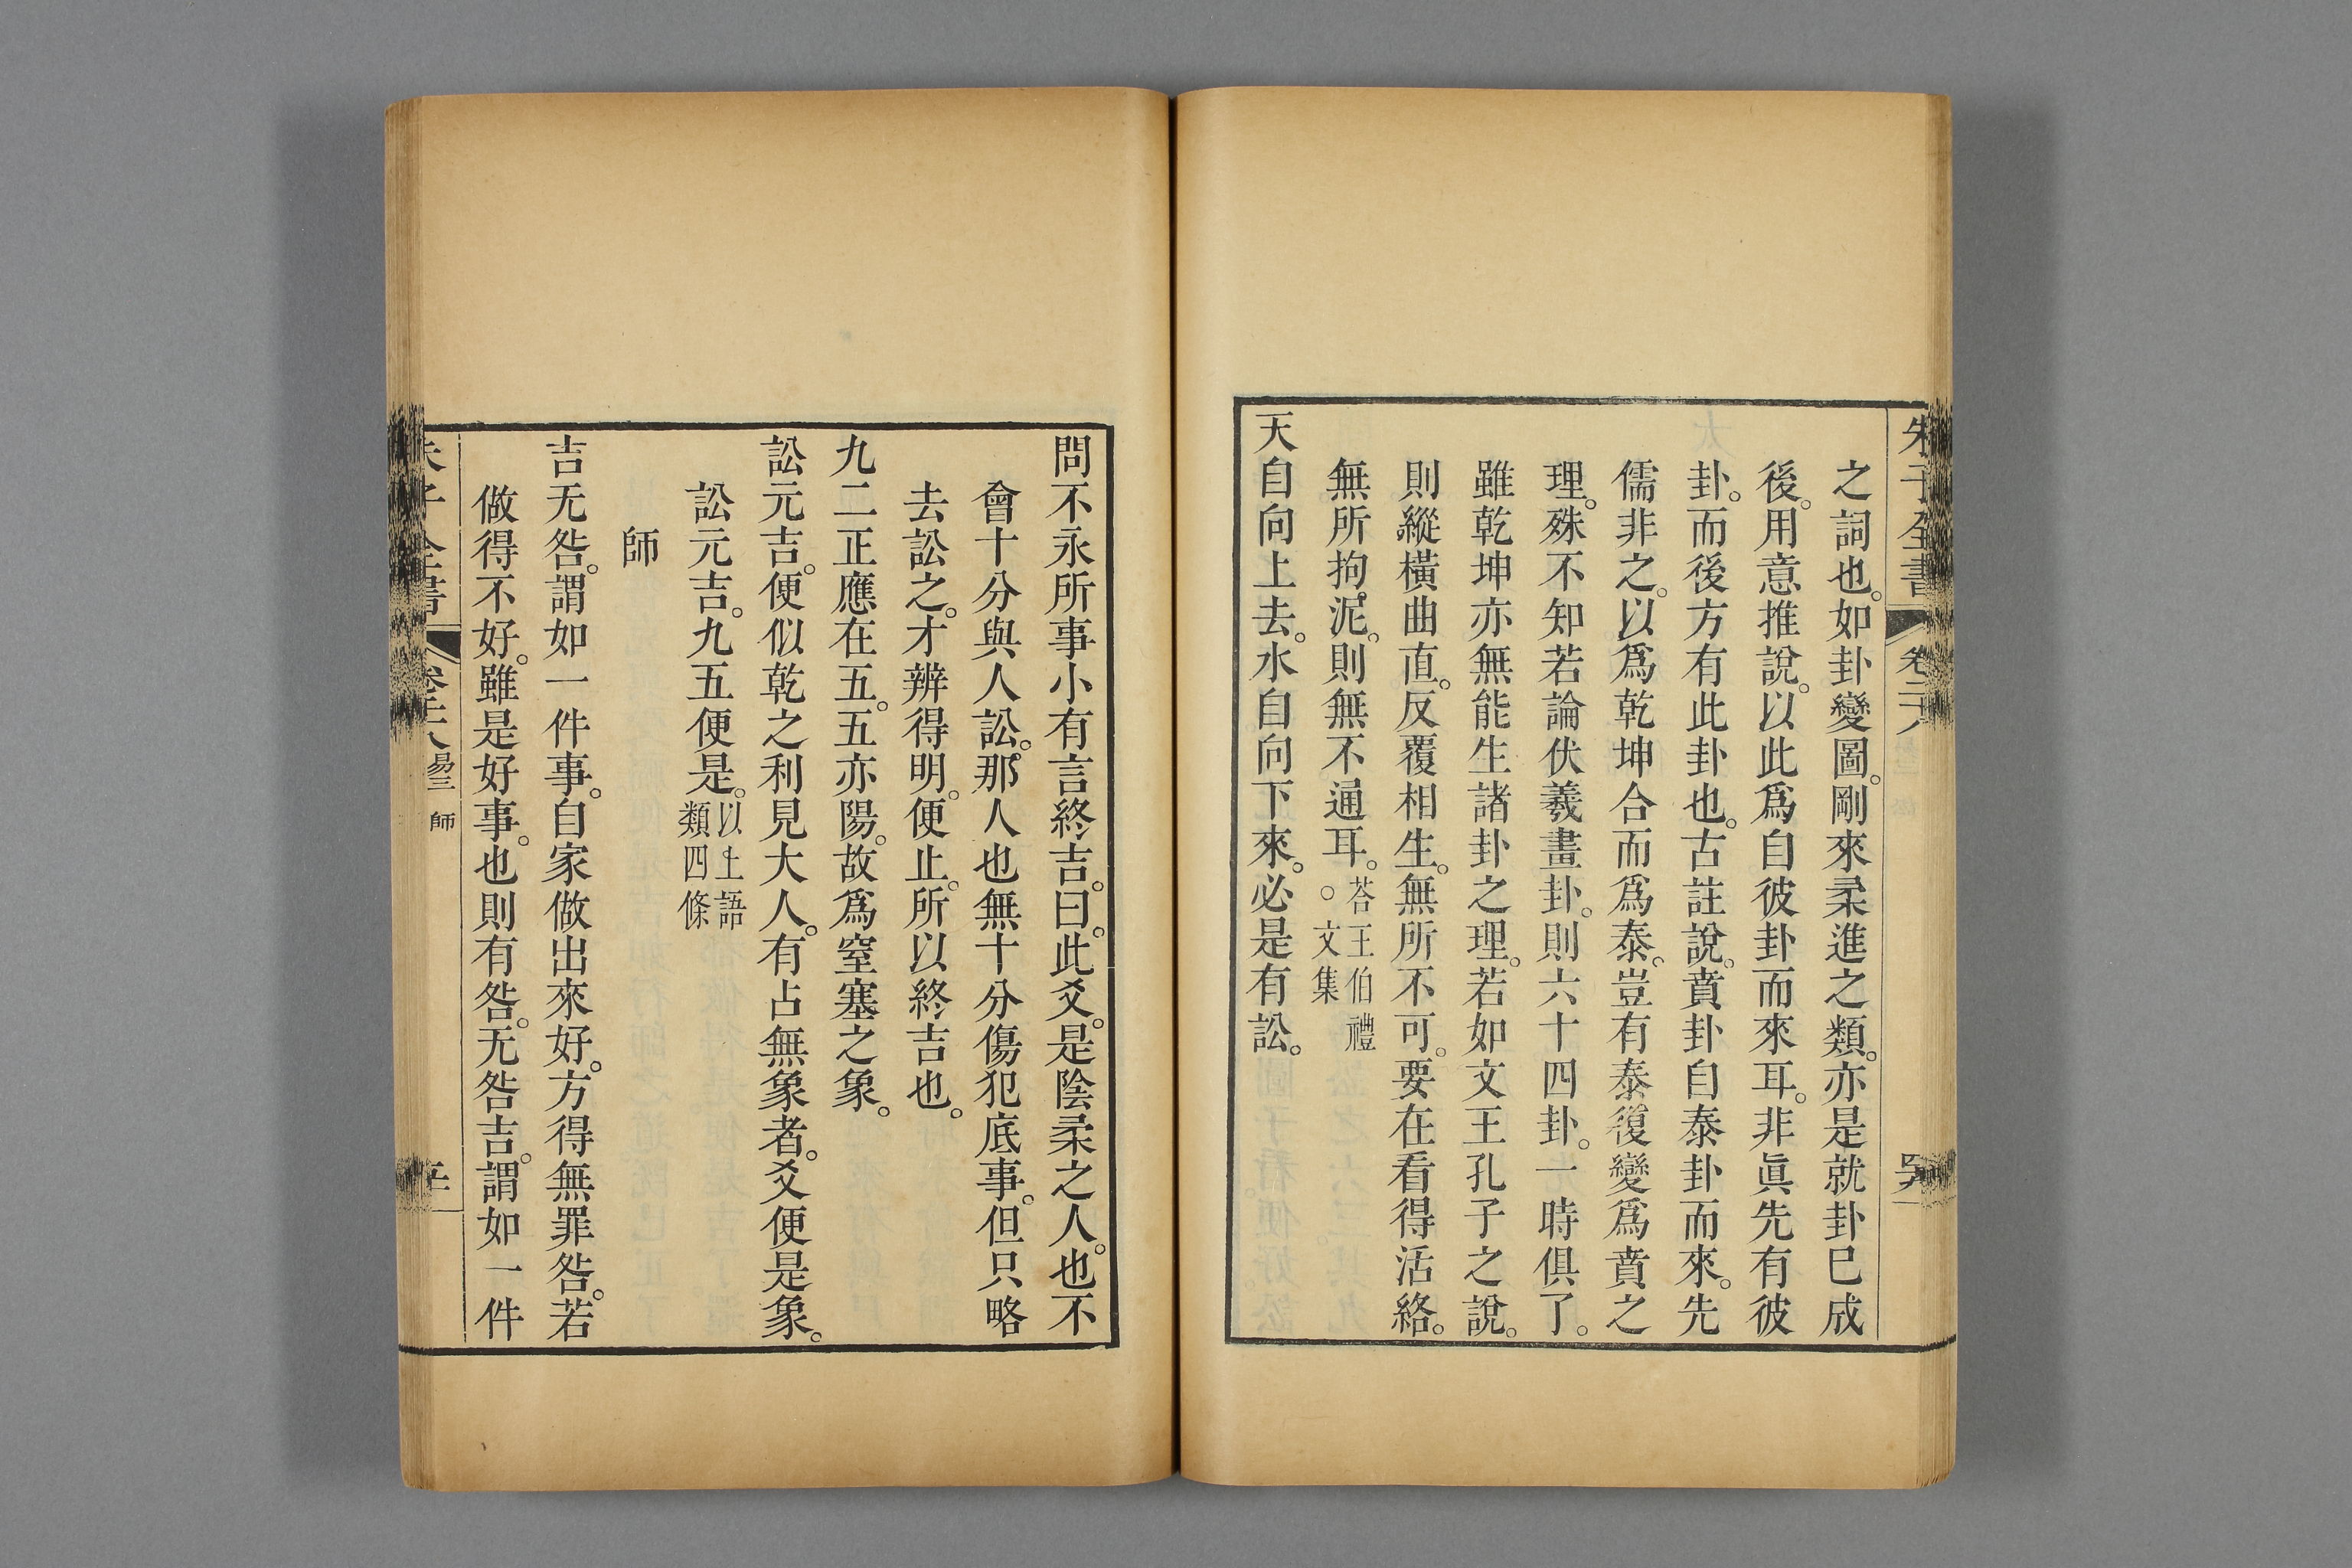 朱子全書 卷二十八
之詞也。如卦變圖。剛來柔進之類。亦是就卦已成
後。用意推說。以此爲自彼卦而來耳。非眞先有彼
卦。而後方有此卦也。古註說。賁卦自泰卦而來。先
儒非之。以爲乾坤合而爲泰。豈有泰復變爲賁之
理。殊不知若論伏羲畫卦。則六十四卦。一時俱了。
雖乾坤亦無能生諸卦之理。若如文王孔子之說。
則縱橫曲直。反覆相生。無所不可。要在看得活絡。
無所拘泥。則無不通耳。答王伯禮
。文集
天自向上去。水自向下來。必是有訟。
問不永所事小有言終吉。曰。此爻。是陰柔之人。也不
會十分與人訟。那人也無十分傷犯底事。但只略
去訟之。才辨得明。便止。所以終吉也。
九二正應在五。五亦陽。故爲窒塞之象。
訟元吉。便似乾之利見大人。有占無象者。爻便是象。
訟元吉。九五便是。以上語
類四條
師
吉无咎。謂如一件事。自家做出來好。方得無罪咎。若
做得不好。雖是好事。也則有咎。无咎吉。謂如一件
朱子全書 易三 師